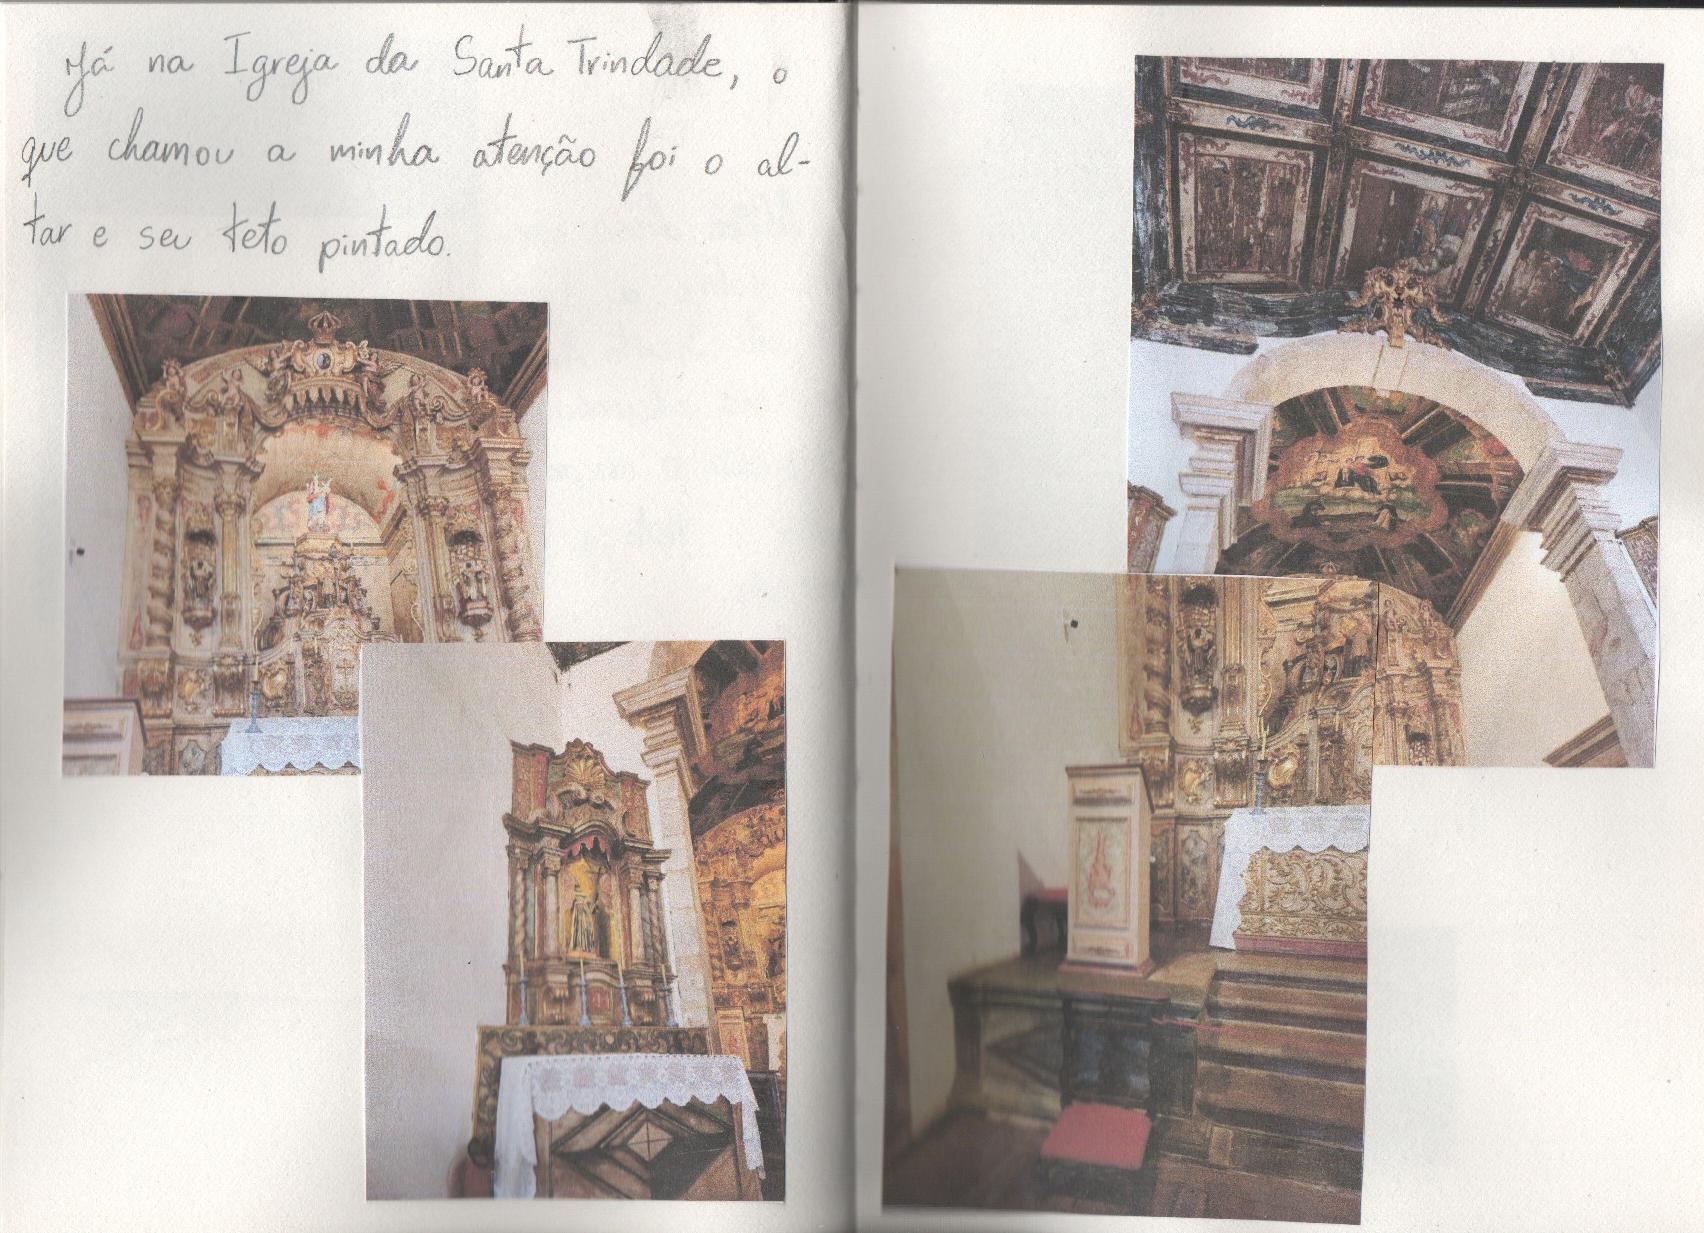 Já na Igreja da Santa Trindade, o
que chamou a minha atenção foi o al-
tar e seu teto pintado.